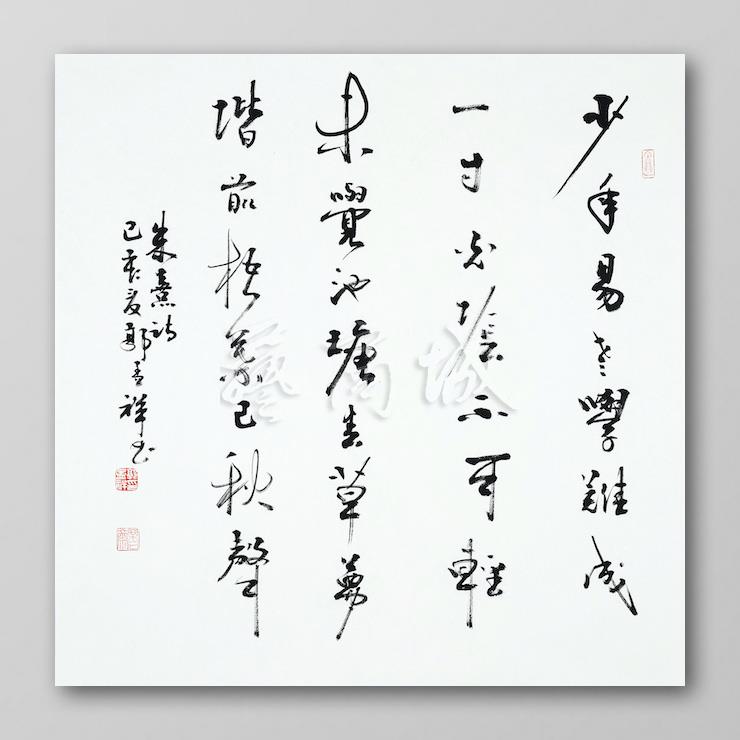 少年易老學難成
一寸光陰不可輕
未覺池塘春草夢
階前梧葉已秋聲
朱熹詩
己亥夏郭孟祥书
藝商城